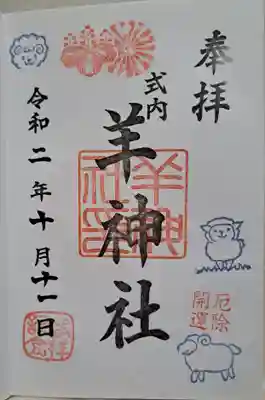 奉拝
厄除
開運
式内
羊神社
令和二年十月十一日